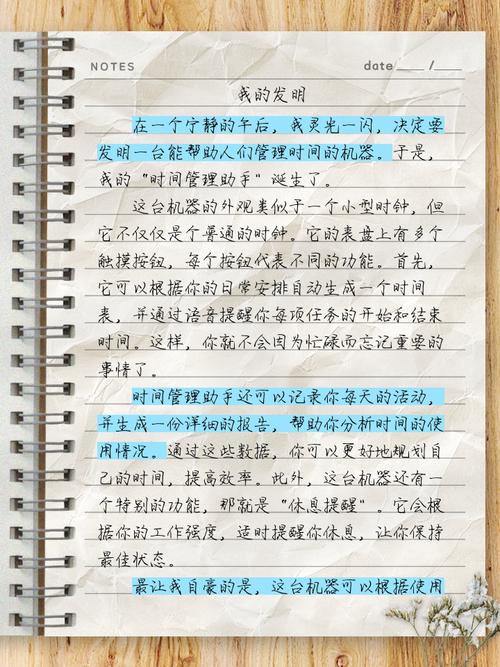 NOTES date ____ / ____
我的发明
在一个宁静的午后，我灵光一闪，决定要
发明一台能帮助人们管理时间的机器。于是，
我的“时间管理助手”诞生了。
这台机器的外观类似于一个小型时钟，但
它不仅仅是个普通的时钟。它的表盘上有多个
触摸按钮，每个按钮代表不同的功能。首先，
它可以根据你的日常安排自动生成一个时间
表，并通过语音提醒你每项任务的开始和结束
时间。这样，你就不会因为忙碌而忘记重要的
事情了。
时间管理助手还可以记录你每天的活动，
并生成一份详细的报告，帮助你分析时间的使
用情况。通过这些数据，你可以更好地规划自
己的时间，提高效率。此外，这台机器还有一
个特别的功能，那就是“休息提醒”。它会根
据你的工作强度，适时提醒你休息，让你保持
最佳状态。
最让我自豪的是，这台机器可以根据使用